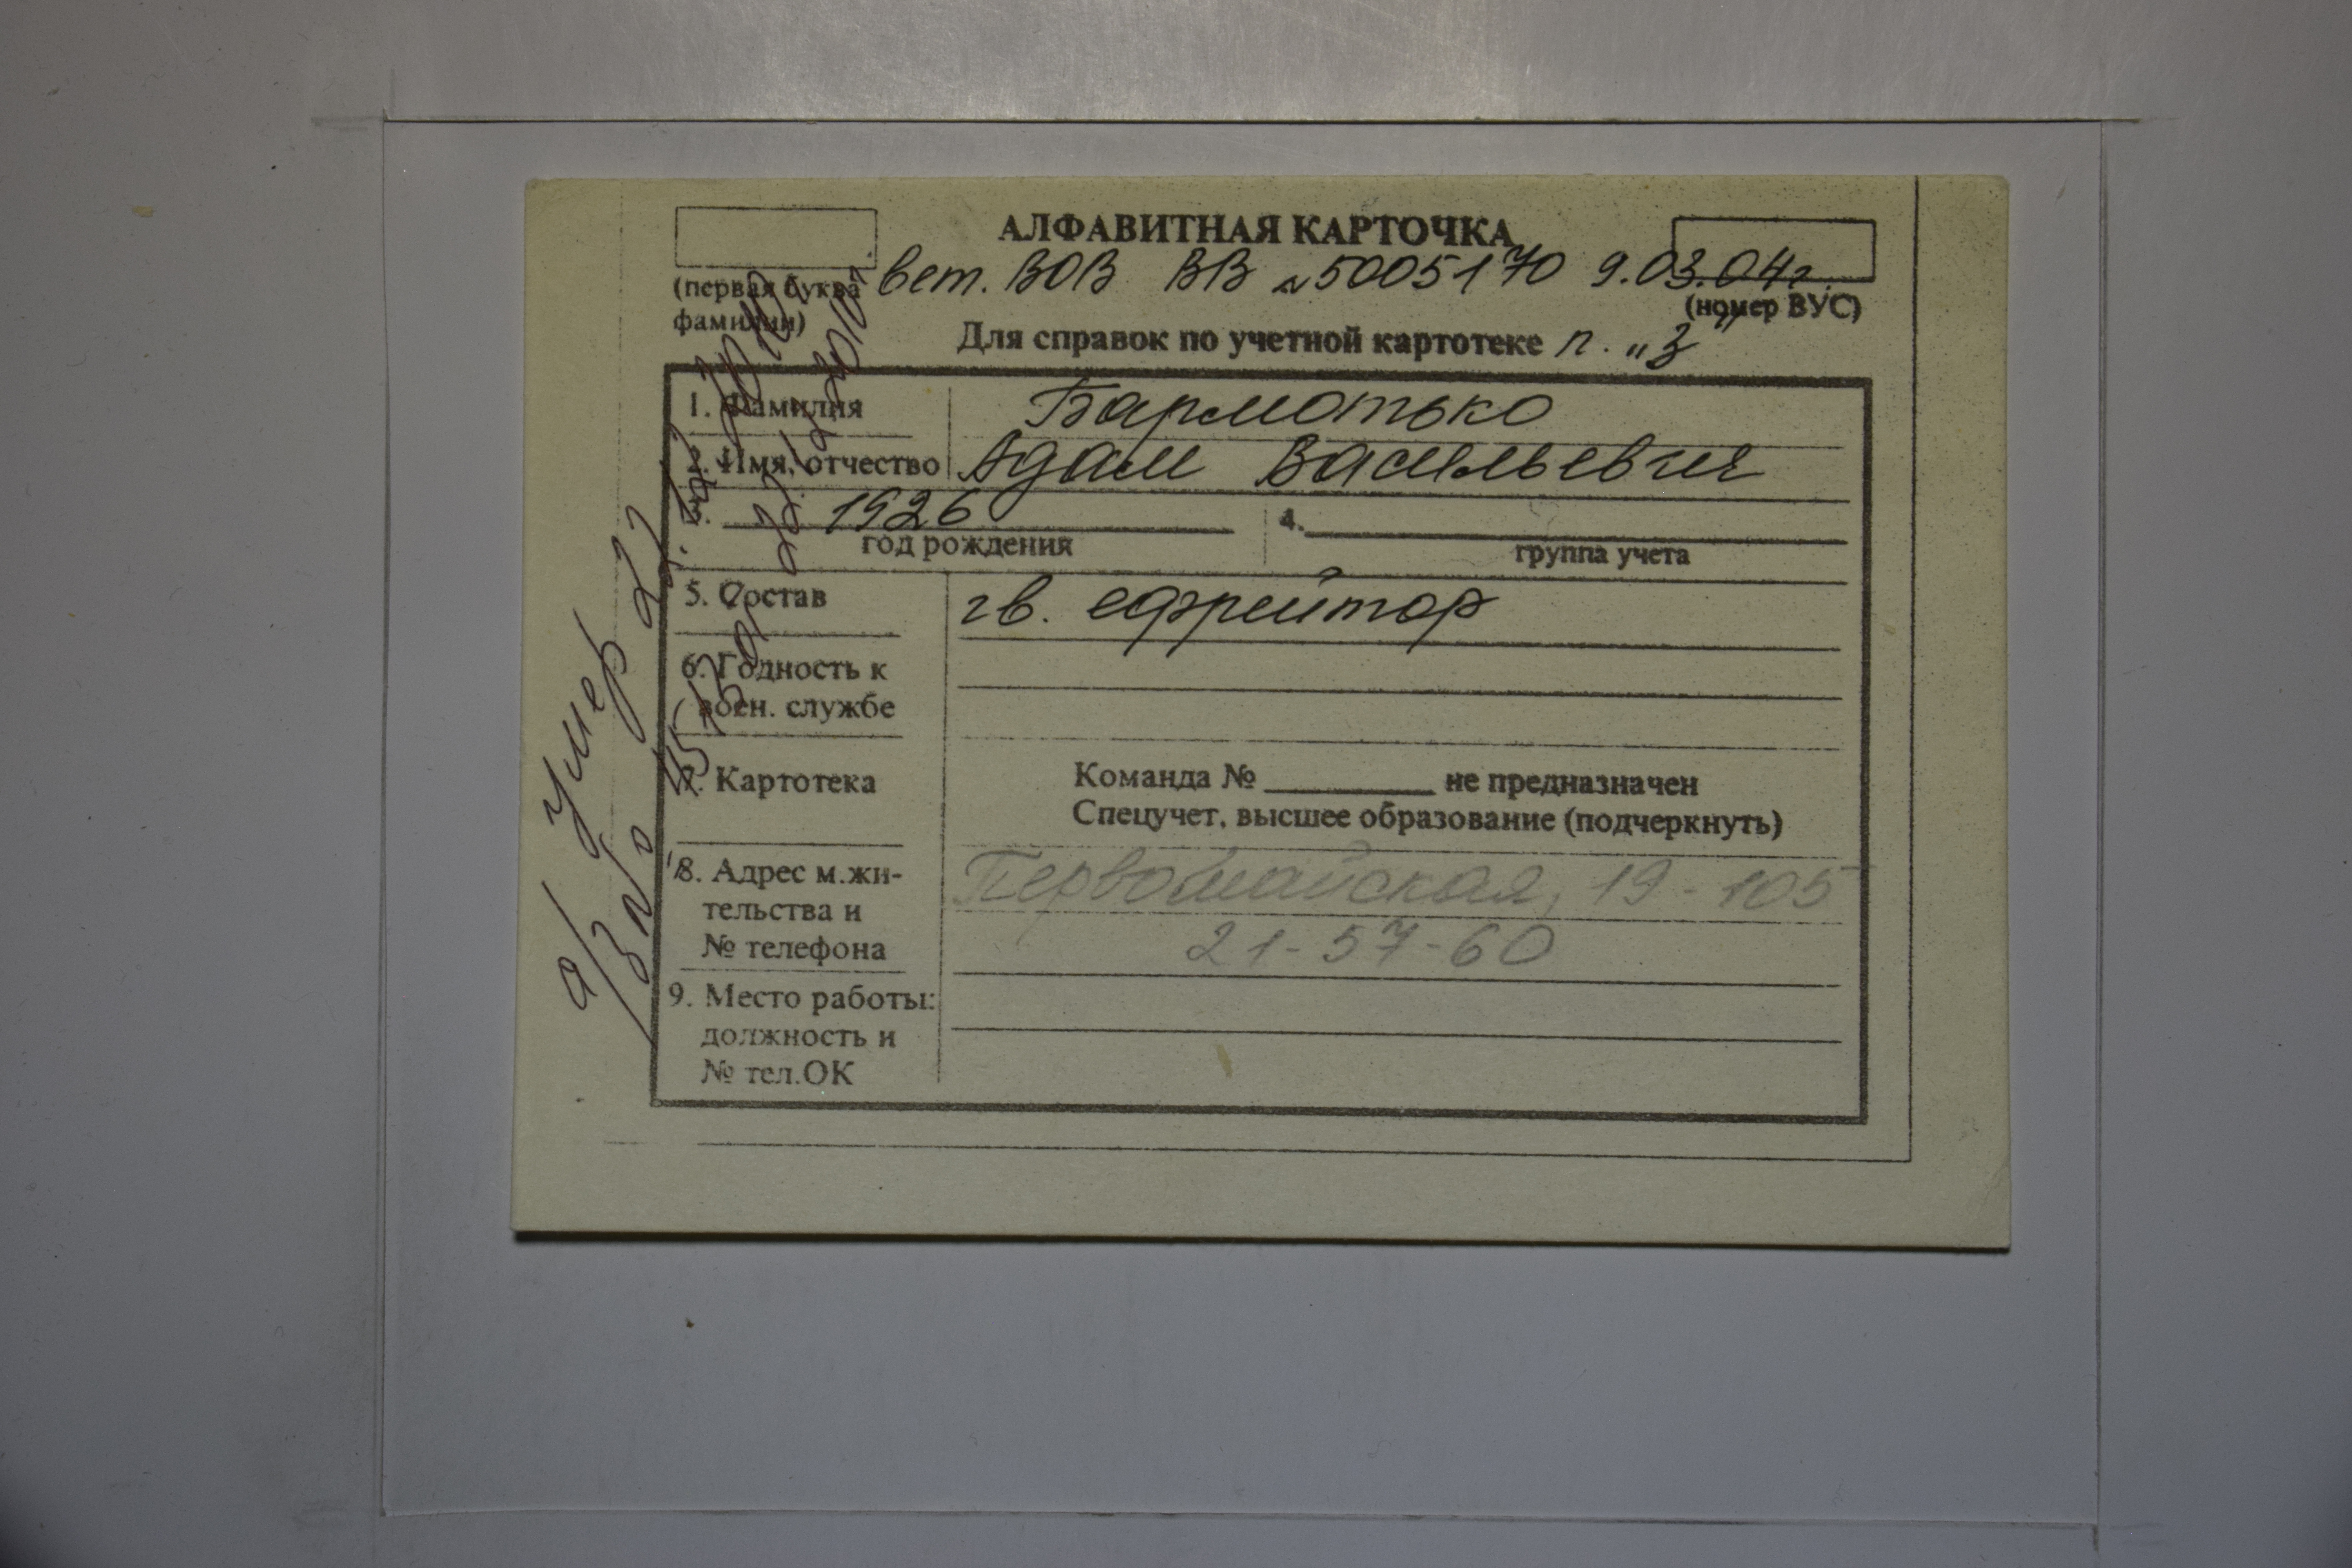 АЛФАВИТНАЯ КАРТОЧКА
вет. ВОВ ВВ №5005170 9.03.04г.
(первая буква
фамилии)
(номер ВУС)
Для справок по учетной картотеке п. „З"
1. Фамилия Бармотько
2. Имя, отчество Адам Васильевич
3. 1926 4.
год рождения группа учета
5. Состав гв. ефрейтор
6. Годность к
воен. службе
7. Картотека Команда № не предназначен
Спецучет, высшее образование (подчеркнуть)
8. Адрес м.жи- Первомайская, 19-105
тельства и
№ телефона 21-57-60
9. Место работы:
должность и
№ тел.ОК
Умер
а/з №